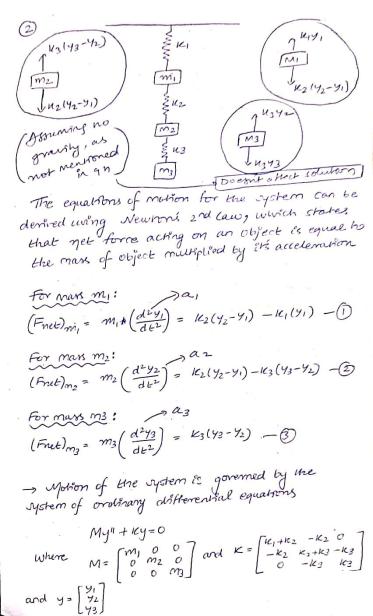 ②
K3(y3-y2)
m2
K2(y2-y1)
K1
m1
K2
m2
K3
m3
K1y1
M1
K2(y2-y1)
K3y2
M3
K3y3
(Assuming no
gravity, as
not mentioned
in qn)
Doesn't affect solution
The equations of motion for the system can be
derived using Newton's 2nd Law, which states
that net force acting on an object is equal to
the mass of object multiplied by its acceleration
For mass m1:
(Fnet)m1 = m1*(d²y1/dt²) → a1 = K2(y2-y1) - K1(y1) - ①
For mass m2:
(Fnet)m2 = m2(d²y2/dt²) → a2 = K2(y2-y1) - K3(y3-y2) - ②
For mass m3:
(Fnet)m3 = m3(d²y3/dt²) → a3 = K3(y3-y2) - ③
→ Motion of the system is governed by the
system of ordinary differential equations
My" + Ky = 0
where M = [m1 0 0
0 m2 0
0 0 m3] and K = [K1+K2 -K2 0
-K2 K2+K3 -K3
0 -K3 K3]
and y = [y1
y2
y3]